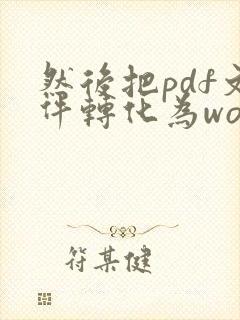 然後把pdf文
件轉化為wo
符某健